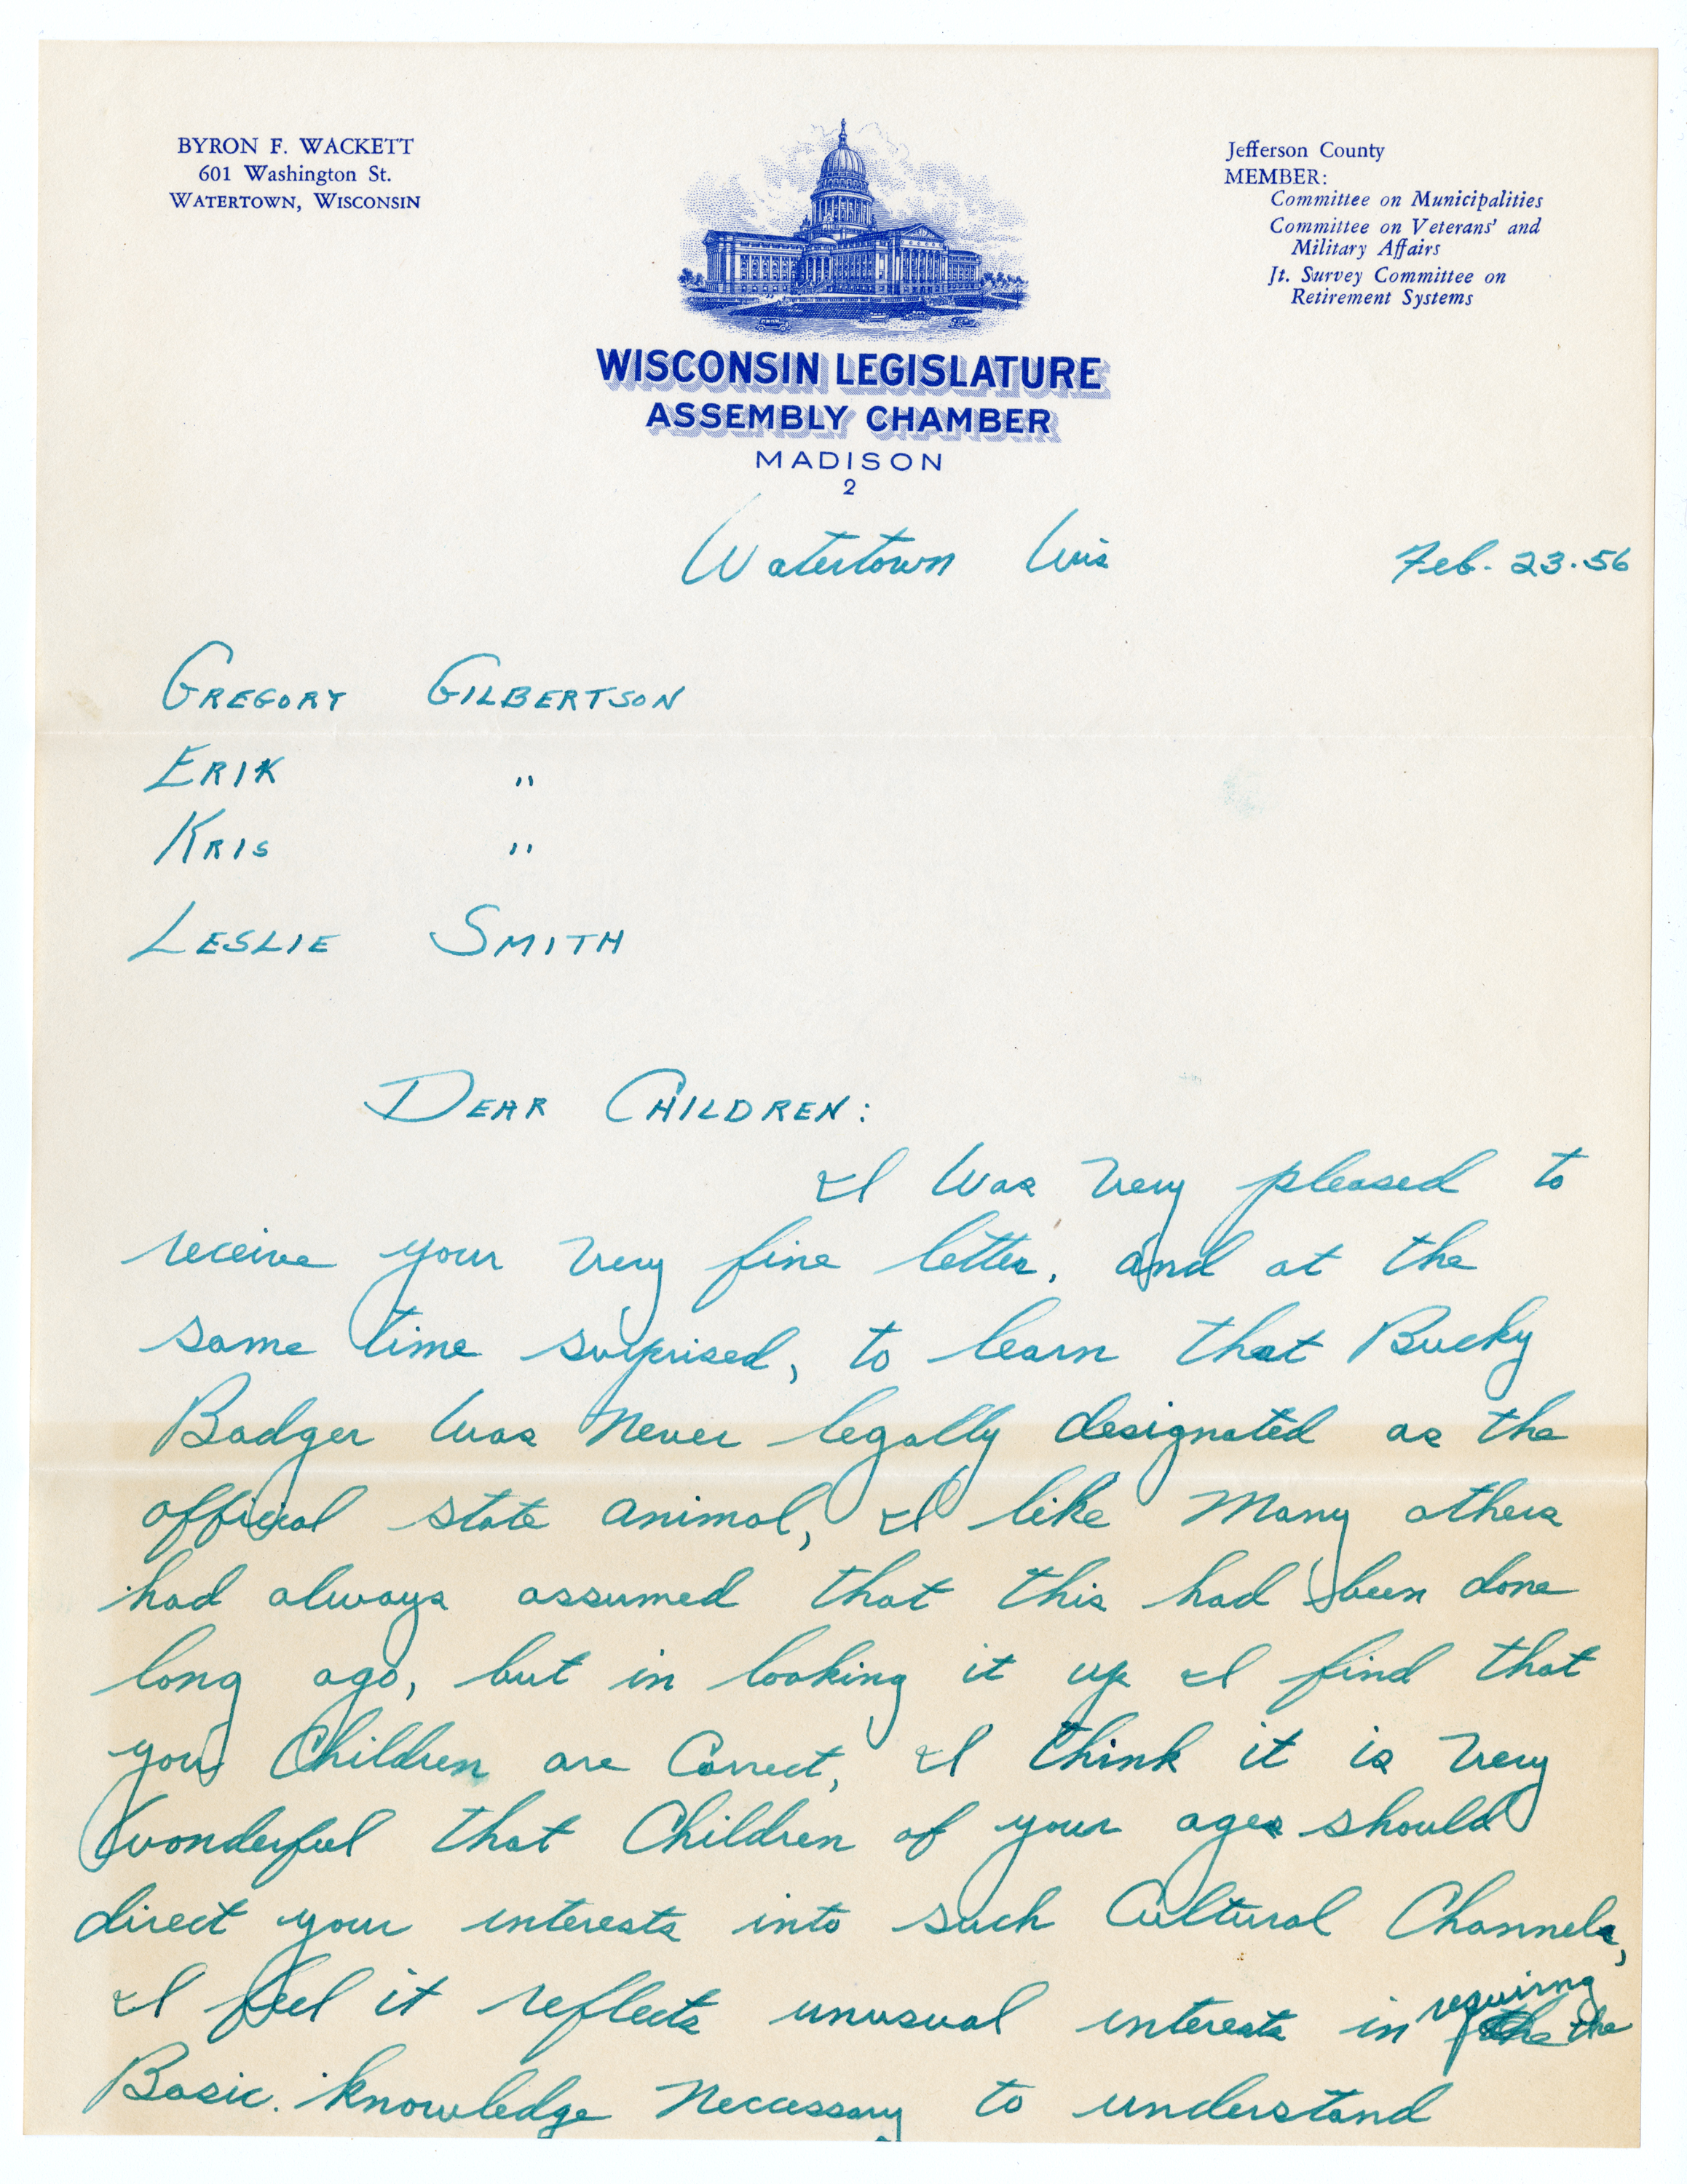 BYRON F. WACKETT
601 Washington St.
WATERTOWN, WISCONSIN
Jefferson County
MEMBER:
Committee on Municipalities
Committee on Veterans' and
Military Affairs
Jt. Survey Committee on
Retirement Systems
WISCONSIN LEGISLATURE
ASSEMBLY CHAMBER
MADISON
2
Watertown Wis Feb. 23.56
GREGORY GILBERTSON
ERIK "
KRIS "
LESLIE SMITH
DEAR CHILDREN:
I Was Very pleased to
receive your Very fine letter, and at the
same time surprised, to learn that Bucky
Badger Was Never legally designated as the
official state animal, I like Many others
had always assumed that this had been done
long ago, but in looking it up I find that
you Children are Correct, I think it is Very
Wonderful that Children of your ages should
direct your interests into such Cultural Channels,
I feel it reflects unusual interests in requiring the
Basic. knowledge Necessary to understand